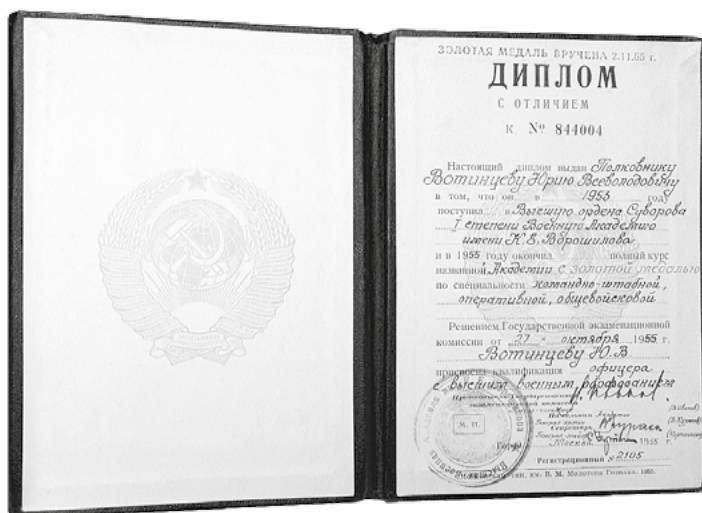 ЗОЛОТАЯ МЕДАЛЬ ВРУЧЕНА 2.11.55 г.
ДИПЛОМ
С ОТЛИЧИЕМ
К № 844004
Настоящий диплом выдан Полковнику
Вотинцеву Юрию Всеволодовичу
в том, что он в 1953 году
поступил в Высшую ордена Суворова
I степени Военную Академию
имени К.Е. Ворошилова
и в 1955 году окончил полный курс
названной Академии с золотой медалью
по специальности командно-штабной,
оперативной, общевойсковой
Решением Государственной экзаменационной
комиссии от 27 октября 1955 г.
Вотинцеву Ю.В.
присвоена квалификация офицера
с высшим военным образованием
М. П.
Город Москва 1955 г.
Регистрационный № 2105
тип. им. В. М. Молотова Гознака. 1955.